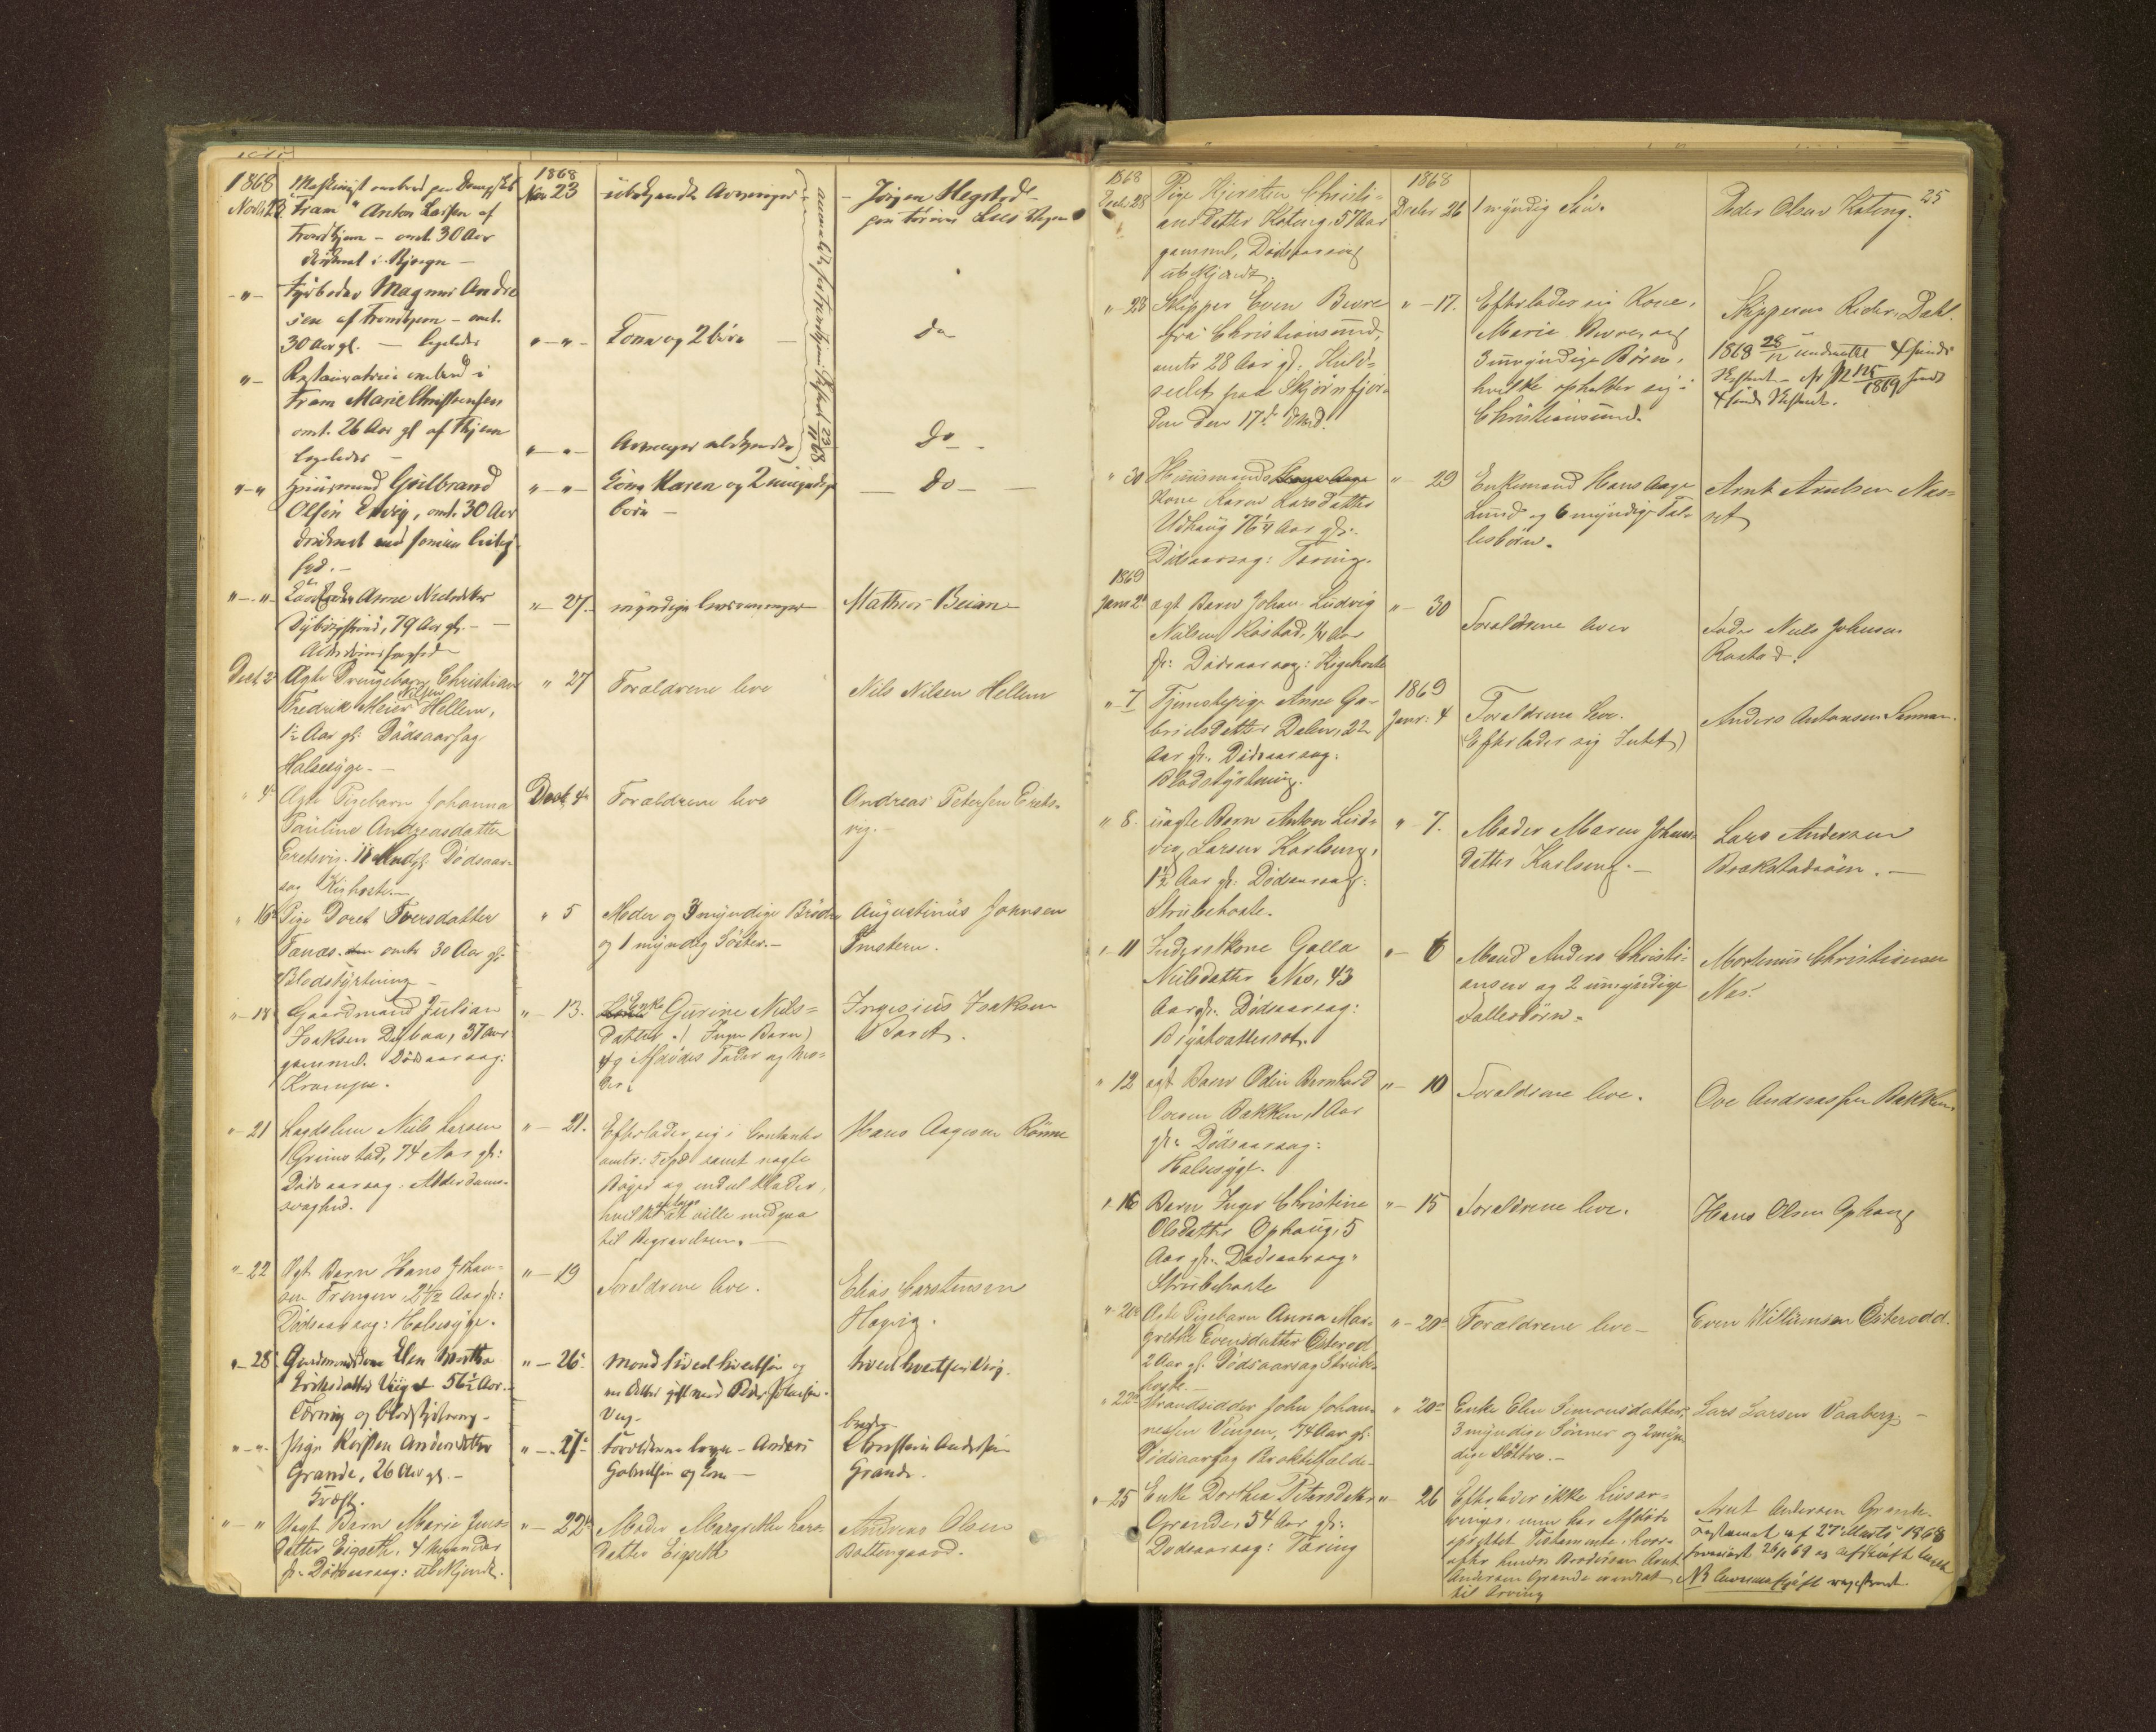 1868
Novb 23
Maskinist ombord paa Dampsk
Fram" Anton Larsen af
Trondhjem - omt. 30 Aar
druknet i Bjugn -
1868
Nov 23
ubekjendte Arvinger
anmeldt for Trondhjems Skifteret 23/11 68
- Jörgen Hegstad
-"-
Fyrböder Magnus Andre
sen af Trondhjem - omt.
30 Aar gl. - ligeledes
" - " -
Kone og 2 börn
do
"-
Restauratrice ombord i
Fram Marie Christensen
omt. 26 Aar gl af Thjem
ligeledes -
" - " -
Arvinger ubekjendte
do -
"-"
Huusmand Gulbrand
Olsen Ervig, omt. 30 Aar
druknet ved samme Leilig
hed. -
" - " -
Kone Karen og 2 umyndige
börn -
- do -
"-"-
Anne Nielsdatter
Dybvigstrand, 79 Aar gl. -
Alderdomssvaghed
" - 27.
myndige Livsarvinger
Mathias Beian
Decb. 2
Ægte Drengebarn Christian
Fredrik Meier Nilsen Hellem,
1½ Aar gl: Dödsaarsag
Halsesyge. -
" 27
Forældrene leve
Nils Nilsen Hellem
" 4
Ægte Pigebarn Johanna
Pauline Andreasdatter
Eretsvig. 18 Dödsaar-
sag Kighoste. -
Decb. 4
Forældrene leve
Andreas Petersen Erets-
vig. -
" 16
Pige Doret Iversdatter
Fanæs. omtr 30 Aar gl.
Blodstyrtning -
" 5
Moder og 3 myndige Brödre
og 1 myndig Söster. -
Augustinus Johnsen
" - 18
Gaardmand Julian
Isaksen Dybaa, 37 Aar
gammel. Dödsaarsag:
Krampe.
" - 13.
Enke Gurine Niels-
datter. (Ingen Barn)
og Afdödes Fader og Mo-
der.
Ingesius Isaksen
" - 21
Lægdslem Niels Larsen
Greinstad, 74 Aar gl:
Dödsaarsag: Alderdoms-
svaghed.
" - 21.
Efterlader sig i Contanter
omtr: samt nogle
Böger og endel Klæder,
hvilket antages at ville medgaa
til Begravelsen. -
Hans Aagesen Rönne
" - 22
Ægt Barn Hans Johan-
sen Trengen, 2 Aar gl:
Dödsaarsag: Halsesyge.
" - 19
Forældrene leve.
Elias Carstensen
Hagvig.
" - 28
Gaardmandskone Elen Martha
Eriksdatter 56½ Aar. -
Tæring og Blodstyrtning -
" - 26.
Mand
en datter gift med Peder
" - "
Pige Kirsten Andersdatter
Grande, 26 Aar gl. -
" - 27.
Forældrene leve - Anders
Gabrielsen og Kone -
broder
Christian Andersen
Grande.
" - "
Uægt Barn Marie Jens-
datter Eigseth, 4 Maaneder
gl. Dödsaarsag: ubekjendt.
" - 22.
Moder Margrethe Lars-
datter Eigseth
Andreas Olsen
Bottengaard.
25
1868
Decbr 28
Pige Kjersten Christi-
andatter Koteng, 57 Aar
gammel, Dödsaarsag
ubekjendt.
1868
Decbr 26
1 myndig Sön.
Peder Olsen Koteng.
" 28
Skipper Even Bure
fra Christiansund,
omtr 28 Aar gl. Kuld-
seilet paa Skjörnfjor-
den den 17de ds.
" - 17.
Efterlader sig Kone,
Marie Bure, og
3 umyndige Börn,
hvilke opholder sig i
Christiansund.
Skipperens Reder, Dahl.
1868 28/12
" 30
Huusmands
Kone Karen Larsdatter
Udhaug 76¼ Aar gl.
Dödsaarsag: Tæring.
" - 29
Enkemand Hans Aage
Lund og 6 myndige Fæl-
lesbörn.
Arnt Arntsen Næs-
set
1869
Janr 2
ægt Barn Johan Ludvig
Nielsen Röstad, ¼ Aar
gl: Dödsaarsag: Kighoste
" - 30
Forældrene lever
Fader Niels Johnsen
Röstad.
" - 7
Tjenestepige Anne Ga-
brielsdatter Dalen, 22
Aar gl. Dödsaarsag:
Blodstyrtning.
1869
Janr: 4
Forældrene leve.
(Efterlader sig Intet)
Anders Antonsen
" 8.
uægte Barn Anton Lud-
vig Larsen Karlseng,
1½ Aar gl: Dödsaarsag:
Strubehoste.
" - 7.
Moder Maren Johans-
datter Karlseng. -
Lars Andersen
Brækstadöien. -
" - 11
Inderstkone Galla
Nielsdatter Næs, 43
Aar gl. Dödsaarsag:
Brystvattersot.
" - 6
Mand Anders Christi-
ansen og 2 umyndige
Fællesbörn.
Mortinus Christiansen
Næs.
" 12
ægt Barn Odin Bernhard
Ovesen Bakken, 1 Aar
gl: Dödsaarsag:
Halsesyge.
" - 10
Forældrene leve.
Ove Andreassen Bakken.
" - 16
Barn Inger Christine
Olsdatter Ophaug, 5
Aar gl. Dödsaarsag:
Strubehoste
" - 15
Forældrene leve.
Hans Olsen Ophaug
" - 20
Ægte Pigebarn Anna Mar-
grethe Evensdatter Österod
2 Aar gl. Dödsaarsag Strube-
hoste. -
" - 20
Forældrene leve -
Even Williamsen Österodd.
" 22
Strandsidder John Johan-
nessen Vengen, 74 Aar gl.
Dödsaarsag Braktilfælde
" 20
Enke Elen Simonsdatter,
3 myndige Sönner og 2 myn
dige Döttre. -
Lars Larsen Vaaberg -
" - 25
Enke Dorthea Petersdatter
Grande, 54 Aar gl:
Dödsaarsag: Tæring
" - 26
Efterlader ikke Livsar-
vinger, men har Afdöde
oprettet Testamente, hvor-
efter hendes Brodersön Arnt
Andersen Grande er indsat
til Arving
Arnt Andersen Grande.
Testament af 27 Marts 1868